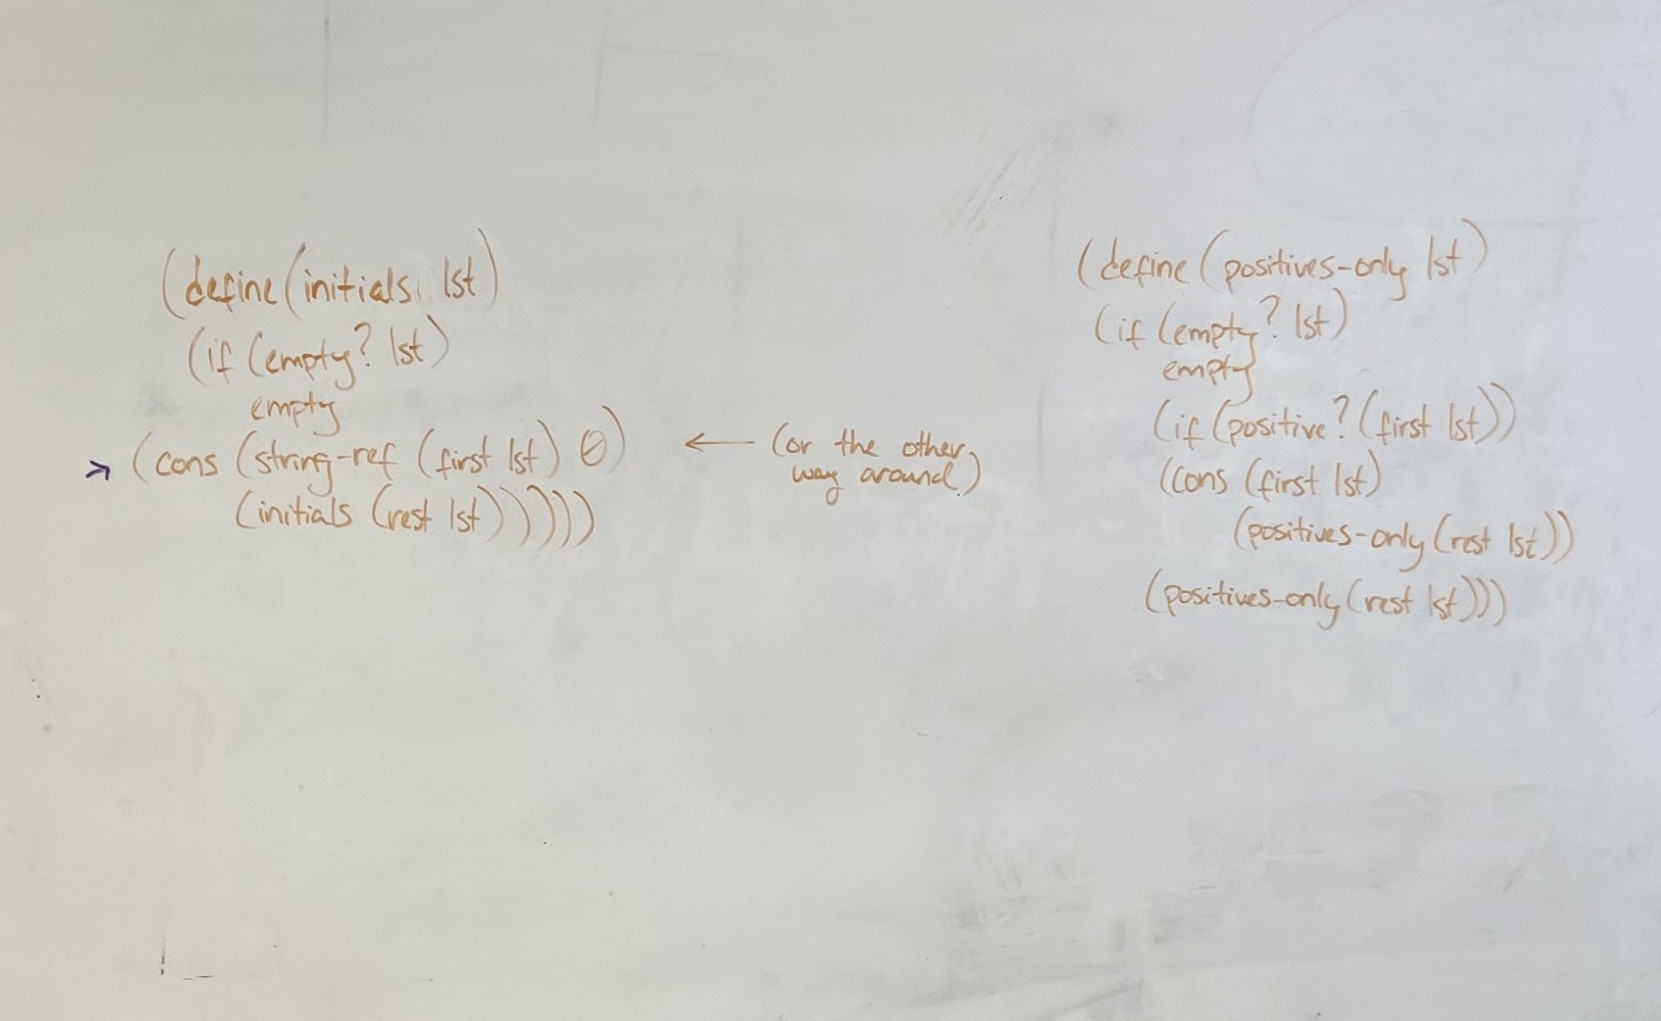 (define (initials lst)
(if (empty? lst)
empty
(cons (string-ref (first lst) 0)
(initials (rest lst))))))
← (or the other
way around.)
(define (positives-only lst)
(if (empty? lst)
empty
(if (positive? (first lst))
(cons (first lst)
(positives-only (rest lst))
(positives-only (rest lst)))